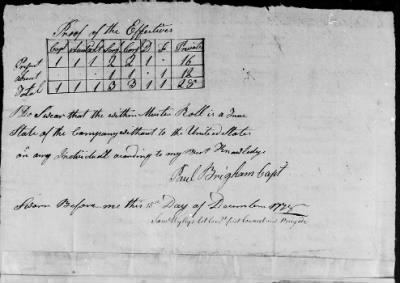 Proof of the Effectives
Capt Lieut Lt Serj Corp D F Private
Present 1 1 1 2 2 1 . 16
absent . . . 1 1 . 1 12
Total 1 1 1 3 3 1 1 28
I Do Swear that the within Muster Roll is a True
State of the Company without to the United States
or any Individuall acording to my best Knowledge
Paul Brigham Capt
Sworn Before me this 15th Day of December 1778
Saml Wyllys Col Comdt first Connecticut Brigade